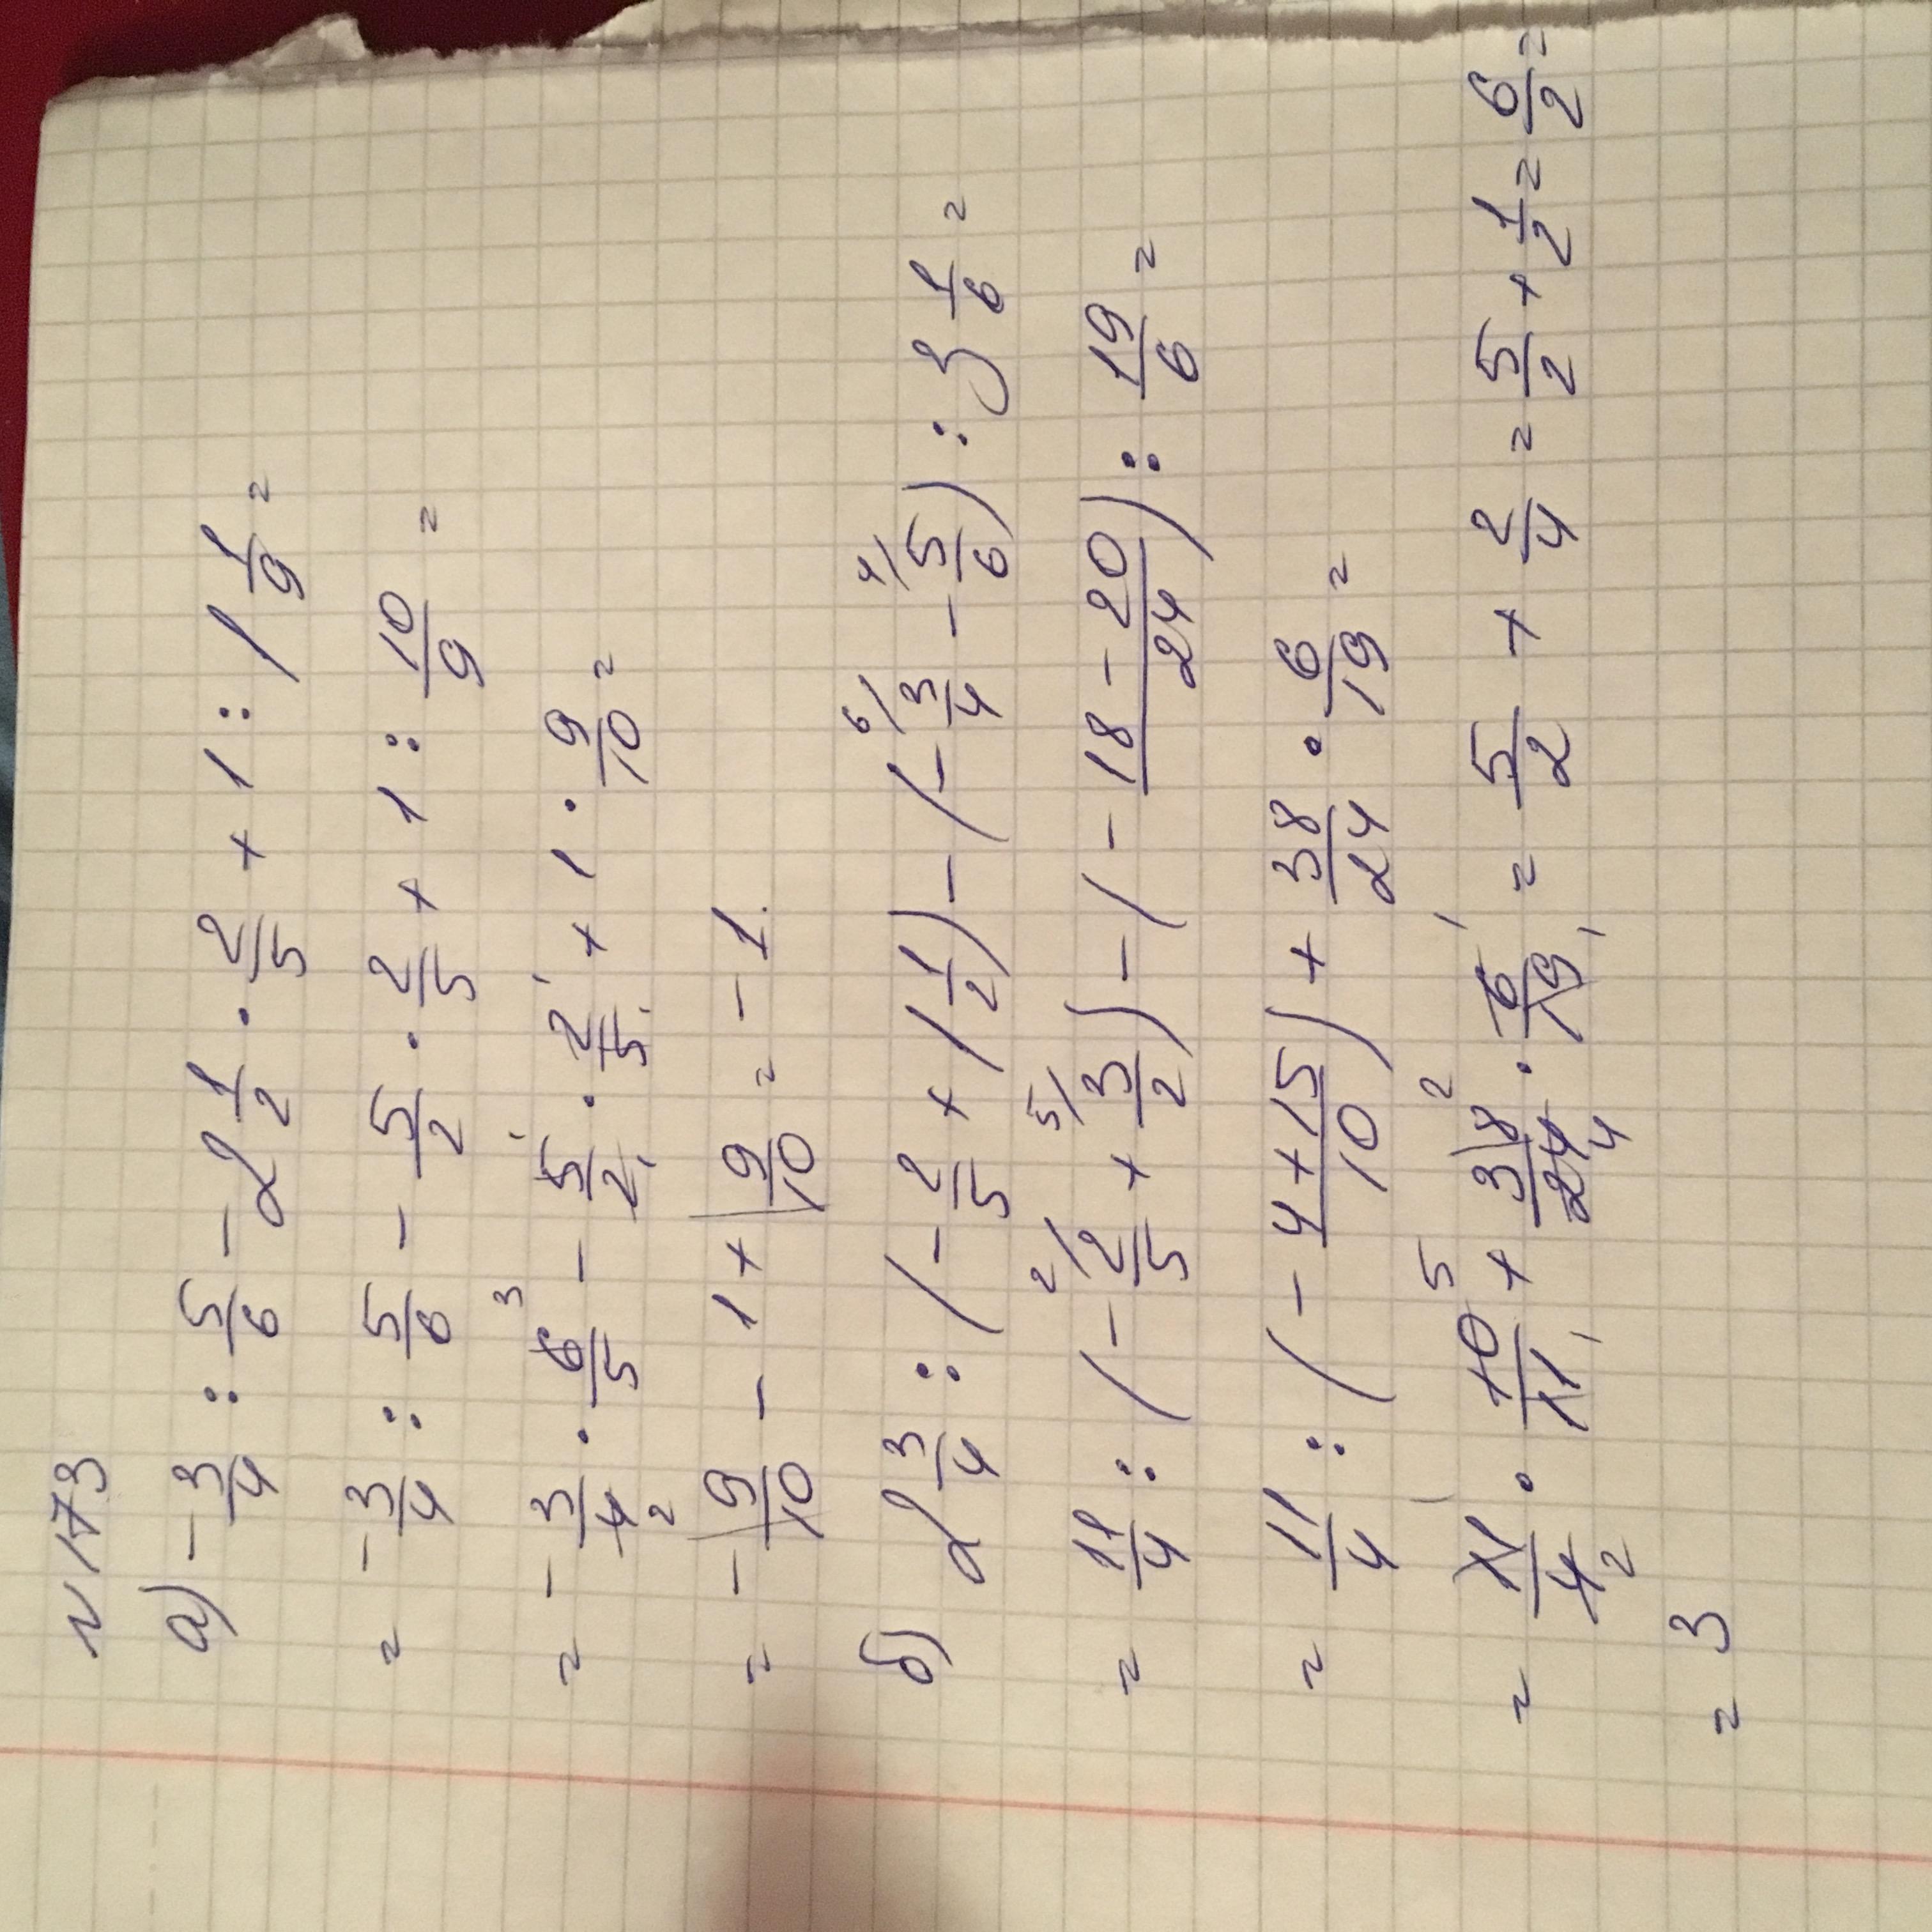 N 173
а) - 3/4 : 5/6 - 2 1/2 · 2/5 + 1 : 1 1/9 =
= - 3/4 : 5/6 - 5/2 · 2/5 + 1 : 10/9 =
= - 3/4 2 · 6/5 3 - 5/2 1 1 · 2/5 1 1 + 1 · 9/10 =
= - 9/10 - 1 + 9/10 = - 1.
б) 2 3/4 : (- 2/5 + 1 1/2) - (- 3/4 6/ - 5/6 4/) : 3 1/6 =
= 11/4 : (- 2/5 2/ + 3/2 5/) - (- 18 - 20/24) : 19/6 =
= 11/4 : (- 4 + 15/10) + 38/24 · 6/19 =
= 11/4 1 2 · 10/11 5 1 + 38/24 2 4 · 6/19 1 1 = 5/2 + 2/4 = 5/2 + 1/2 = 6/2 =
= 3